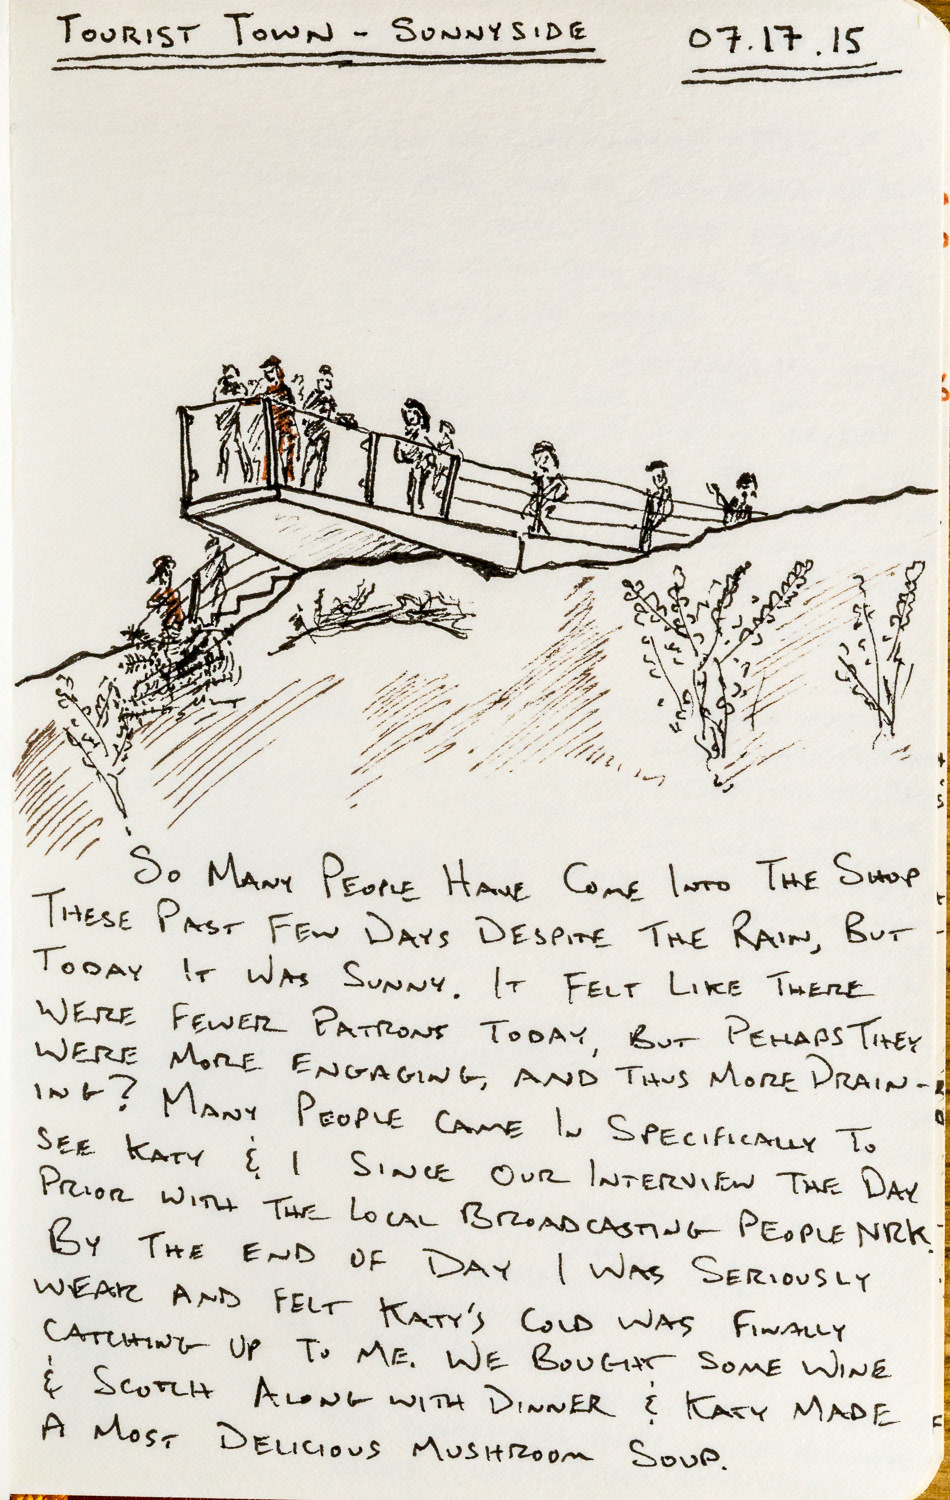 TOURIST TOWN - SUNNYSIDE
07.17.15
SO MANY PEOPLE HAVE COME INTO THE SHOP
THESE PAST FEW DAYS DESPITE THE RAIN, BUT
TODAY IT WAS SUNNY. IT FELT LIKE THERE
WERE FEWER PATRONS TODAY, BUT PEHAPS THEY
WERE MORE ENGAGING, AND THUS MORE DRAIN-
ING? MANY PEOPLE CAME IN SPECIFICALLY TO
SEE KATY & I SINCE OUR INTERVIEW THE DAY
PRIOR WITH THE LOCAL BROADCASTING PEOPLE NRK.
BY THE END OF DAY I WAS SERIOUSLY
WEAK AND FELT KATY'S COLD WAS FINALLY
CATCHING UP TO ME. WE BOUGHT SOME WINE
& SCOTCH ALONG WITH DINNER & KATY MADE
A MOST DELICIOUS MUSHROOM SOUP.